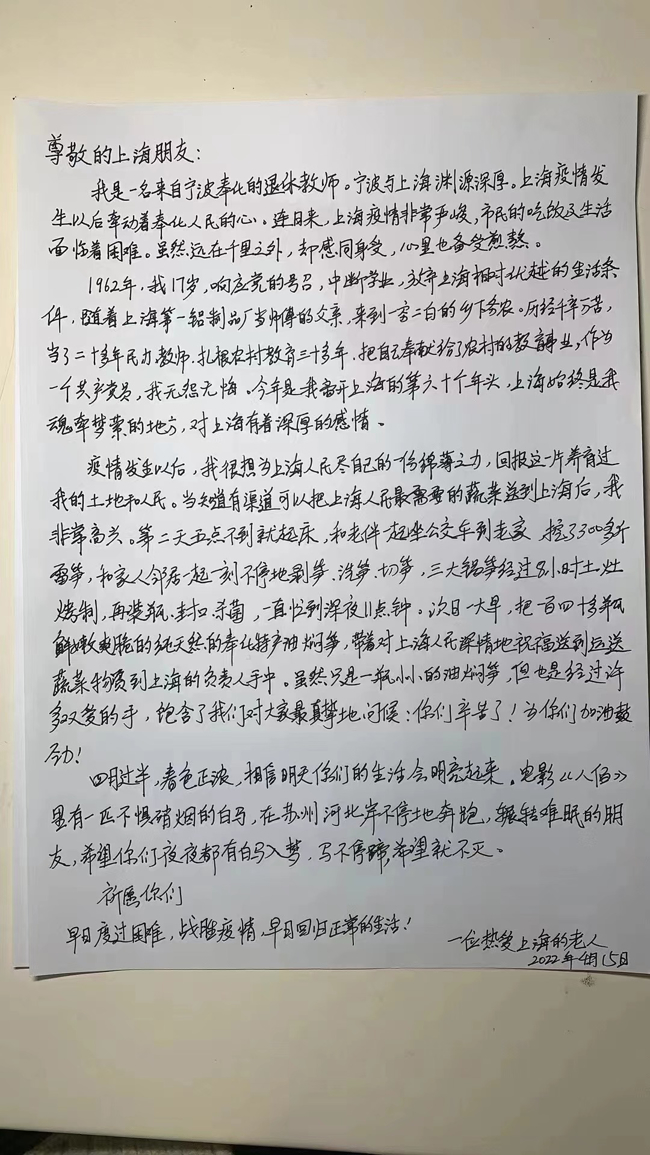 尊敬的上海朋友：
我是一名来自宁波奉化的退休教师。宁波与上海渊源深厚。上海疫情发
生以后牵动着奉化人民的心。连日来，上海疫情非常严峻，市民的吃饭及生活
面临着困难。虽然远在千里之外，却感同身受，心里也备受煎熬。
1962年，我17岁，响应党的号召，中断学业，放弃上海相对优越的生活条
件，随着上海第一铝制品厂当师傅的父亲，来到一穷二白的乡下务农。历经千辛万苦，
当了二十多年民办教师，扎根农村教育三十多年，把自己奉献给了农村的教育事业，作为
一个共产党员，我无怨无悔。今年是我离开上海的第六十个年头，上海始终是我
魂牵梦萦的地方，对上海有着深厚的感情。
疫情发生以后，我很想为上海人民尽自己的一份绵薄之力，回报这一片养育过
我的土地和人民。当知道有渠道可以把上海人民最需要的蔬菜送到上海后，我
非常高兴。第二天五点不到就起床，和老伴一起坐公交车到老家，挖了300多斤
雷笋，和家人邻居一起一刻不停地剥笋、洗笋、切笋，三大锅笋经过8小时土灶
烤制，再装瓶、封口、杀菌，一直忙到深夜11点钟。次日一大早，把一百四十多瓶
鲜嫩爽脆的纯天然的奉化特产油焖笋，带着对上海人民深情地祝福送到运送
蔬菜物质到上海的负责人手中。虽然只是一瓶小小的油焖笋，但也是经过许
多双爱的手，饱含了我们对大家最真挚地问候：你们辛苦了！为你们加油鼓
劲！
四月过半，春色正浓，相信明天你们的生活会明亮起来。电影《八佰》
里有一匹不惧硝烟的白马，在苏州河北岸不停地奔跑，辗转难眠的朋
友，希望你们夜夜都有白马入梦，马不停蹄，希望就不灭。
祈愿你们
早日度过困难，战胜疫情，早日回归正常的生活！
一位热爱上海的老人
2022年4月15日